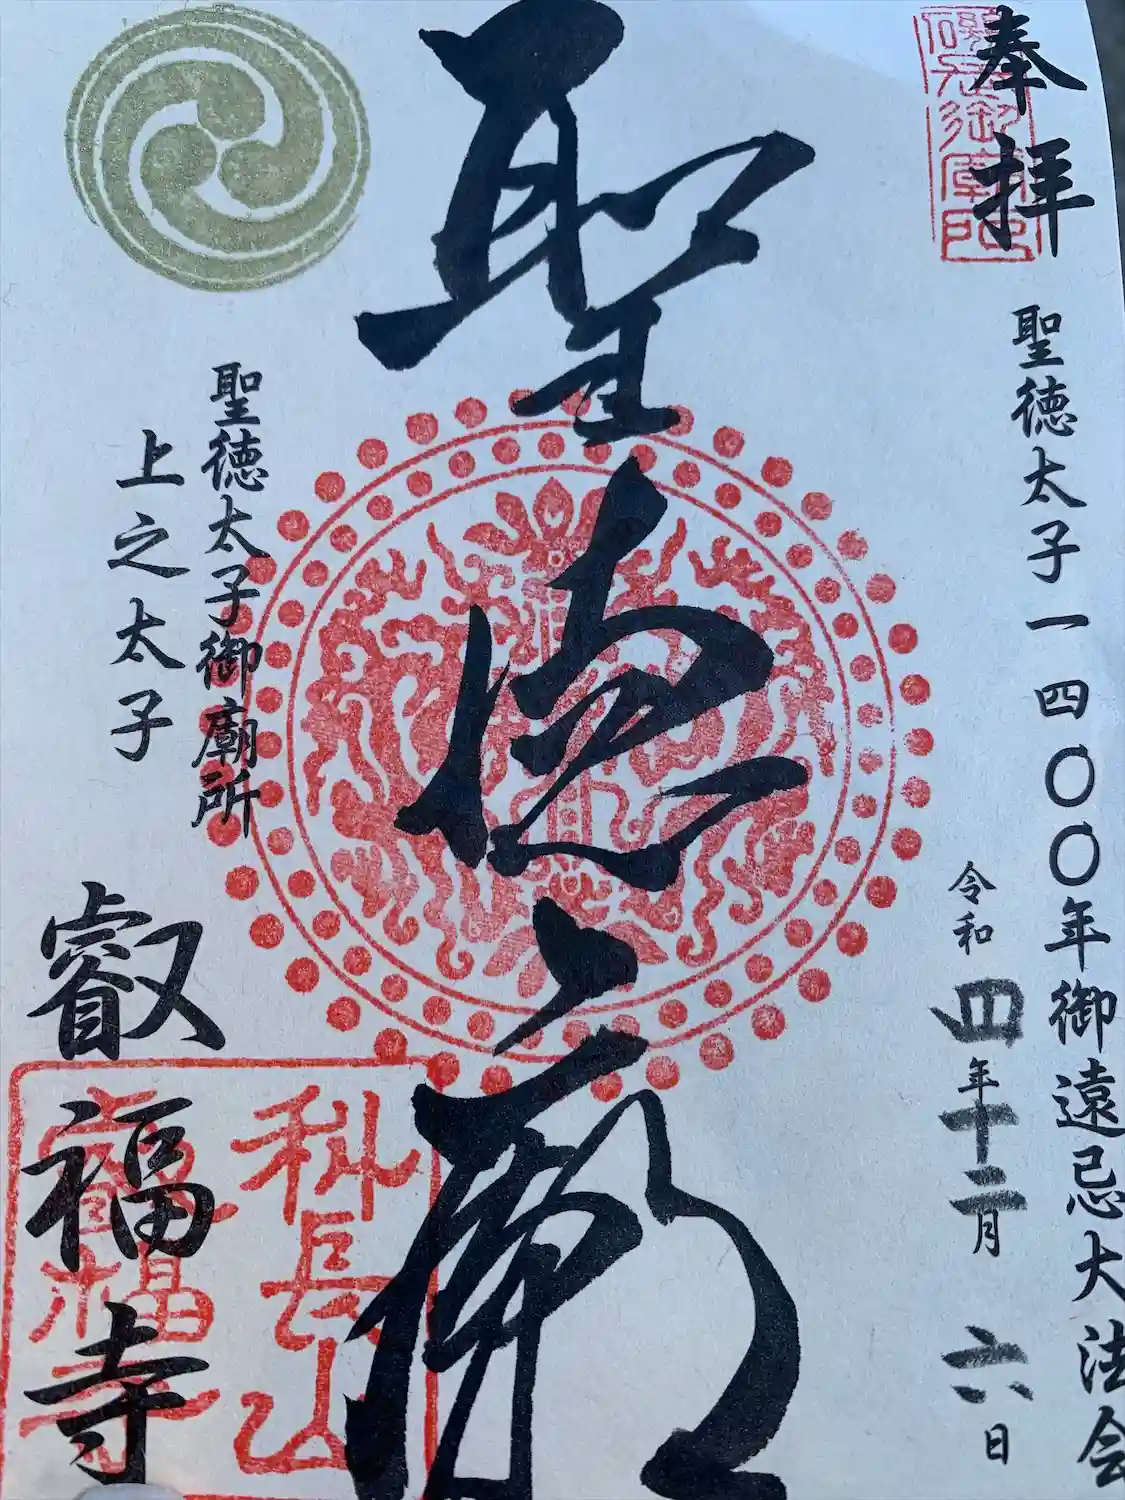 奉拝
聖徳太子一四〇〇年御遠忌大法会
令和四年十二月六日
聖徳廟
聖徳太子御廟所
上之太子
叡福寺
科長山
叡福寺